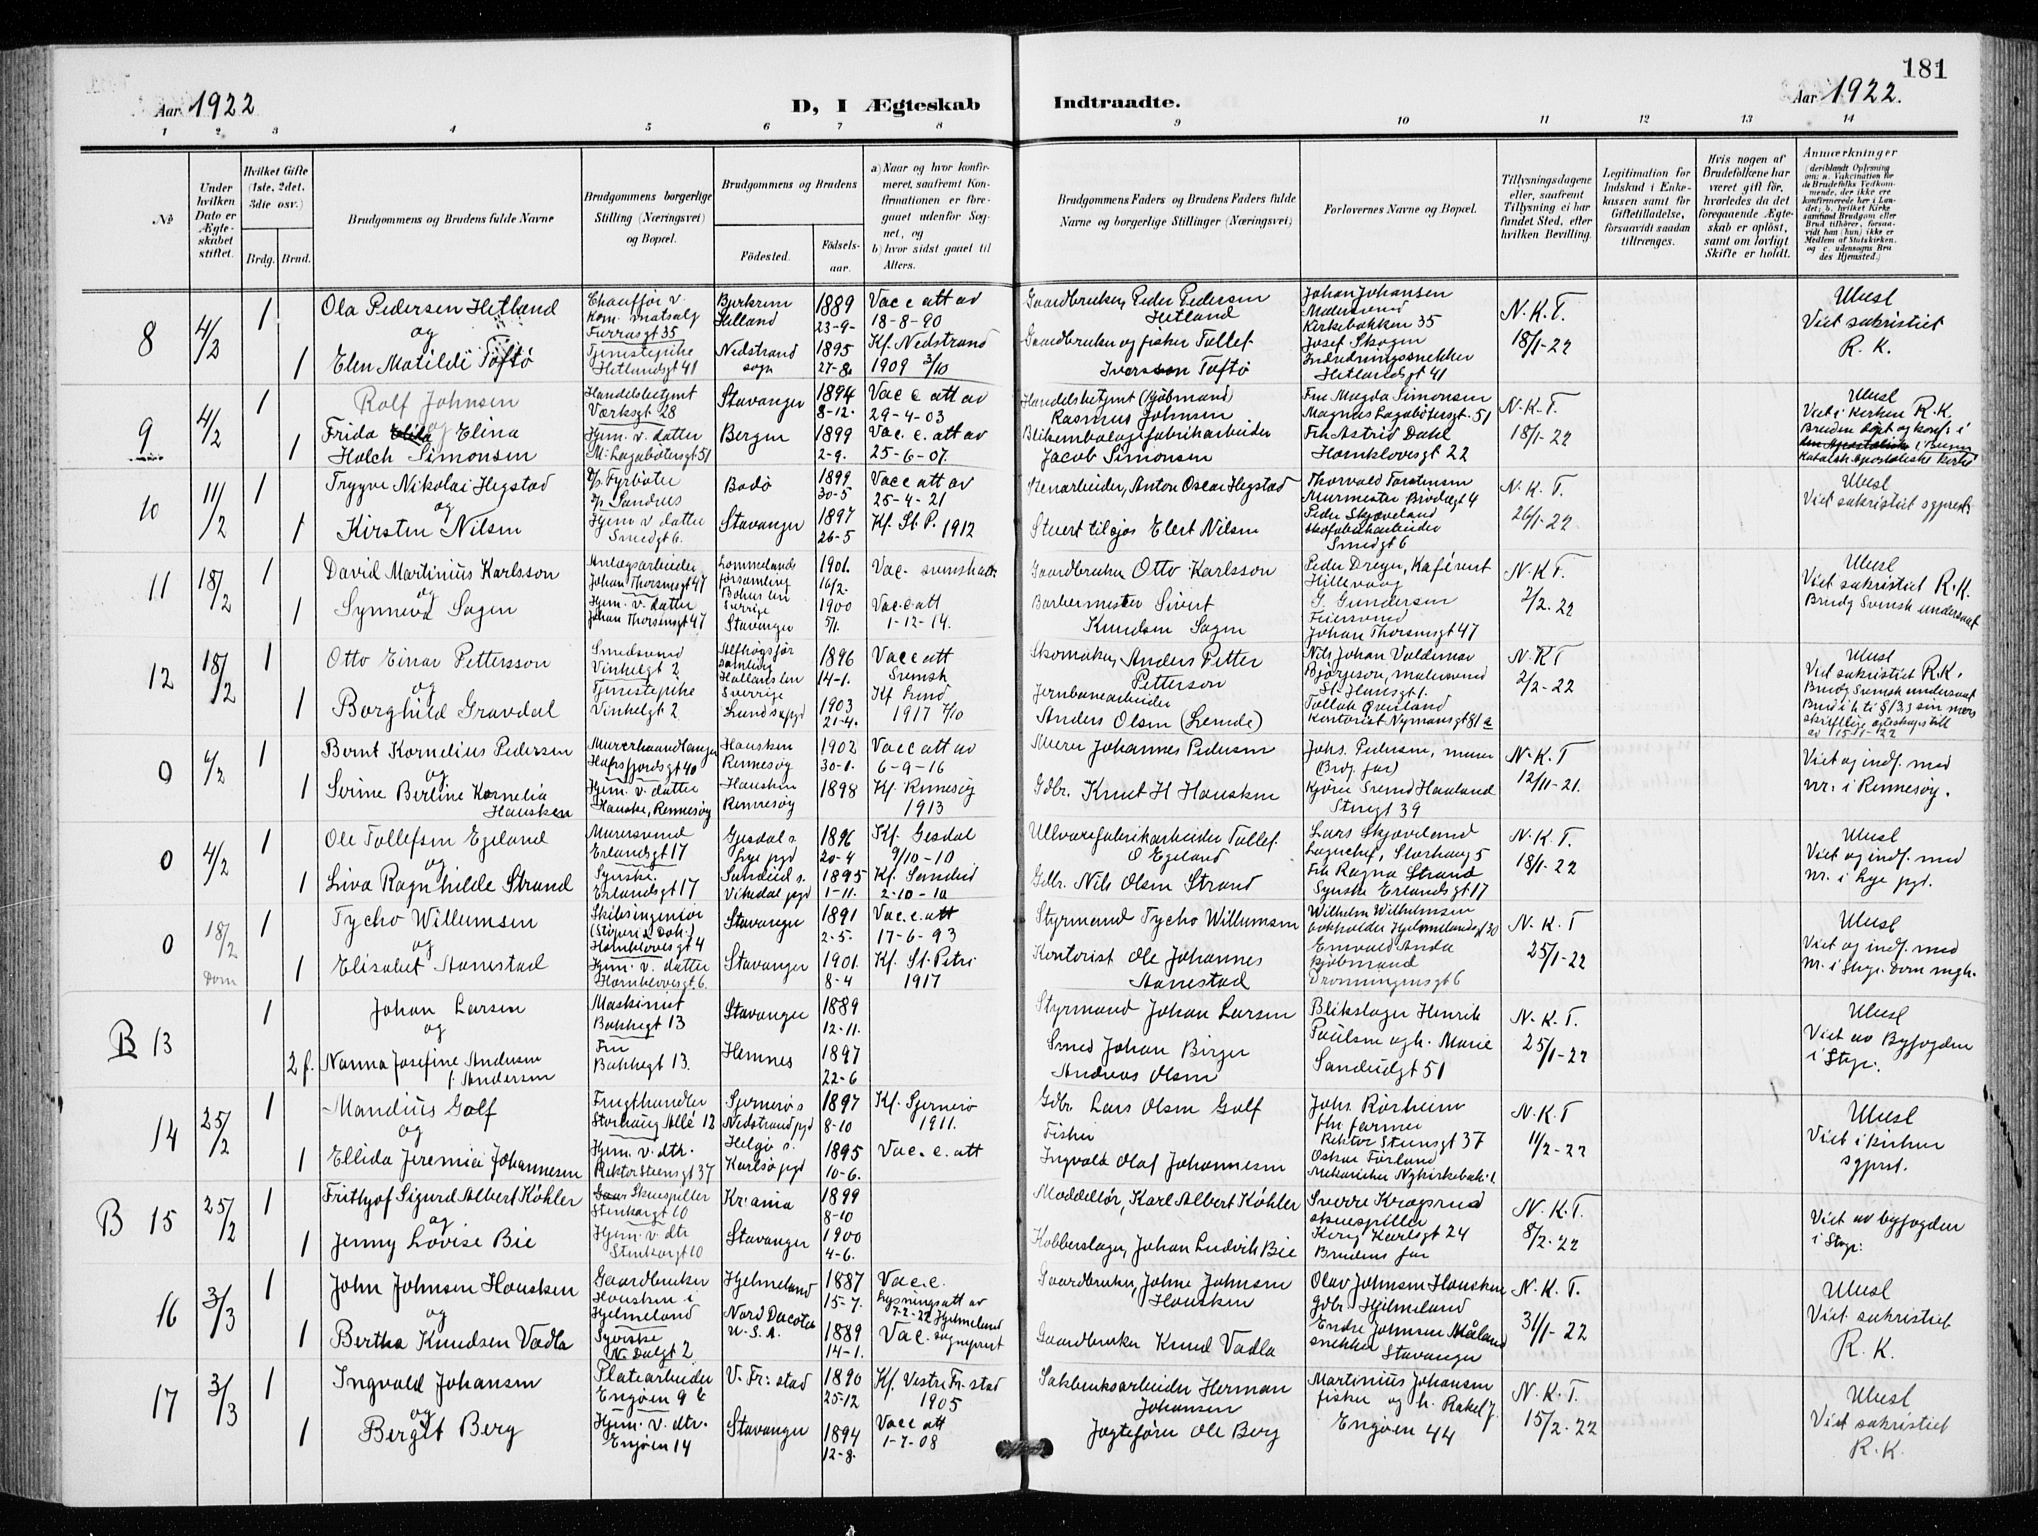 181
Aar 1922
D, I Ægteskab Indtraadte.
Aar 1922.
1 2 3 4 5 6 7 8 9 10 11 12 13 14
No
Under hvilken Dato er Ægteskabet stiftet.
Hvilket Gifte (1ste, 2det, 3die osv.)
Brdg. Brud.
Brudgommens og Brudens fulde Navne
Brudgommens borgerlige Stilling (Næringsvei) og Bopæl.
Brudgommens og Brudens
Födested.
Födselsaar.
a) Naar og hvor konfirmeret, saafremt Konfirmationen er foregaaet udenfor Sognet, og
b) hvor sidst gaaet til Alters.
Brudgommens Faders og Brudens Faders fulde Navne og borgerlige Stillinger (Næringsvei)
Forlovernes Navne og Bopæl.
Tillysningsdagene eller, saafremt Tillysning ei har fundet Sted, efter hvilken Bevilling.
Legitimation for Indskud i Enkekassen samt for Giftetilladelse, forsaavidt saadan tiltrænges.
Hvis nogen af Brudefolkene har været gift för, hvorledes da det foregaaende Ægteskab er oplöst, samt om lovligt Skifte er holdt.
Anmærkninger
(deriblandt Oplysning om: a. Vakcination for de Brudefolks Vedkommende, der ikke ere konfirmerede her i Landet; b. hvilket Kirkesamfund Brudgom eller Brud tilhörer, forsaavidt han (hun) ikke er Medlem af Statskirken, og c. udensogns Brudes Hjemsted.)
8 4/2 1 Ola Pedersen Hetland Chauffør v. Kom. matsalg Furrasgt 35 Bjerkreim Hetland 1889 23-9- Vac e att av 18-8-90 Gaardbruker, Peder Pedersen Hetland Johan Johansen Malersvend Kirkebakken 35 N.K.T. 18/1-22 Ubesl Viet sakristiet R.K.
og
1 Elen Matilde Toftø Tjenestepike Hetlandsgt 41 Nedstrand sogn 1895 27-8 Kf. Nedstrand 1909 3/10 Gaardbruker og fisker Tollef Iversson Toftø Josef Skogen Indredningssnekker Hetlandsgt 41
9 4/2 1 Rolf Johnsen Handelsbetjmt Værksgt 28 Stavanger 1894 8-12- Vac e att av 29-4-03 Handelsbetjmt (kjøbmand) Rasmus Johnsen Frk Magda Simonsen Magnus Lagabøtersgt. 51 N.K.T. 18/1-22 Ubesl Viet i Kirken R.K.
og
1 Frida Elina Holch Simonsen Hjem. v. datter M. Lagabøtersgt 51 Bergen 1899 2-9. Vac. e. att av 25-6-07. Blikemballagefabrikarbeider Jacob Simonsen Frk Astrid Dahl Hornklovesgt 22 Bruden døpt og konf. i Katolsk Apostoliske Kirke
10 11/2 1 Trygve Nikolai Hegstad Fyrbøter Bodø 1899 30-5 Vac e att av 25-4-21 Stenarbeider, Anton Oscar Hegstad Thorvald Torstensen Murmester N.K.T. 26/1-22 Ubesl Viet sakristiet sgprest.
og
1 Kirsten Nilsen Hjem v datter Smedgt 6. Stavanger 1897 26-5 Kf. St. P. 1912 Stuert tilsjøs Elert Nilsen Peder Skjæveland skofabrikarbeider Smedgt 6
11 18/2 1 David Martinius Karlsson Anlægsarbeider Johan Thorsensgt 47 Lommelands församling Bohus len Sverrige 1901 16/2. Vac. svensk att. Gaardbruker Otto Karlsson Peder Dreyer, Kafévert Hillevaag N.K.T. 2/2-22 Ubesl Viet sakristiet R.K. Brudg svensk undersaat
og
1 Synneva Sagen Hjem. v. datter Johan Thorsensgt 47 Stavanger 1900 5/1. Vac. e. att 1-12-14. Barbermester Sivert Knudsen Sagen G. Gundersen Feiersvend Johan Thorsensgt 47
12 18/2 1 Otto Einar Pettersson Smedsvend Vinkelgt 2 Hallands len Sverrige 1896 14-1. Vac e att Svensk Skomaker, Anders Petter Petterson Nils Johan Valdemar Björjeson, malersvend St. Hansgt 1. N.K.T 2/2-22 Ubesl Viet sakristiet R.K. Brudg Svensk undersaat
og
1 Borghild Gravdal Tjenestepike Vinkelgt 2 Lunds pgd 1903 21-4. Kf Lund 1917 7/10 Jernbanearbeider Anders Olsen (Lende) Tollak Qveiland Kontorist Nymansgt 81 a
0 4/2 1 Bernt Kornelius Pedersen Murerhaandlanger Hafrsfjordsgt 40 Hausken Rennesøy 1902 30-1. Vac e att av 6-9-16 Murer Johannes Pedersen Johs. Pedersen, murer (Brdg. far) N.K.T 12/11-21. Viet og indf. med nr. i Rennesøy.
og
1 Svine Berline Kornelia Hausken Hjem. v. datter Hauske, Rennesøy Hausken Rennesøy 1898 Kf. Rennesøy 1913 Gdbr. Knut H Hausken
0 4/2 1 Ole Tollefsen Egeland Murersvend Erlandsgt 17 Gjesdal s Lye pgd 1896 20-4 Kf. Gjesdal 9/10-10 Ulvarefabrikarbeider Tollef O Egeland Lars Skjæveland Lagerchef, Storhaug 5 N.K.T. 18/1-22 Ubesl Viet og indf. med nr. i Lye pgd.
og
1 Liva Ragnhilde Strand Syerske. Erlandsgt 17 Sandeid s. Vikedal pgd 1895 1-11. Kf. Sandeid 2-10-10 Gdbr. Nils Olsen Strand Frk Ragna Strand Syerske Erlandsgt 17
0 18/2 Dom 1 Tycho Willumsen Skibsingeniør Hornklovesgt 4 Stavanger 1891 2-5. Vac. e. att 17-6-93 Styrmand Tycho Willumsen Wilhelm Wilhelmsen N.K.T 25/1-22 Ubesl Viet og indf. med nr. i Stvgr. Dom mgh.
og
1 Elisabet Aanestad Hjem. v. datter Hornklovesgt. 6 Stavanger 1901. 8-4 Kf. St. Petri 1917 Kontorist Ole Johannes Aanestad Enevald Anda kjøbmand Dronningensgt 6
B 13 1 Johan Larsen Maskinist Bakkegt 13 Stavanger 1889 12-11. Styrmand Johan Larsen Blikslager Henrik Paulsen og h. Marie Sandeidgt 51 N.K.T. 25/1-22 Ubesl Viet av Byfogden i Stvgr.
og
2 f. Nanna Josefine Andersen f. Andersen Fru Bakkegt 13. Hemnes 1897 22-6 Smed Johan Birger Andreas Olsen
14 25/2 1 Mandius Golf Frugthandler Storhaug Allé 12 Sjernerø s Nedstrand pgd 1897 8-10 Kf. Sjernerø 1911. Gdbr Lars Olsen Golf Johs. Rörheim fhv. farmer Rektor Steensgt 37 N.K.T 11/2-22 Ubesl Viet i kirken sgprst.
og
1 Ellida Jeremia Johannesen Hjem. v. dtr. Rektor Steensgt 37 Helgø s. Karlsø pgd 1895 10-6. Vac. e. att Fisker Ingvald Olaf Johannesen Oskar Förland Mekaniker Nykirkebak. 1
B 15 25/2 1 Frithjof Sigurd Albert Köhler Skuespiller Stenkargt 10 Kr:ania 1899 8-10 Moddellør, Karl Albert Köhler Sverre Kragsrud skuespiller Kong Karlsgt 24 N.K.T. 8/2-22 Viet av byfogden i Stvgr.
og
1 Jenny Lovise Bie Hjem. v. dtr Stenkargt 10 Stavanger 1900 4-6. Kobberslager, Johan Ludvik Bie Brudens far
16 3/3 1 John Johnsen Hausken Gaardbruker Hausken i Hjelmeland Hjelmeland 1887 15-7. Vac. e. Lysningsatt av 7-2-22 Hjelmeland Gaardbruker, Johne Johnsen Hausken Olav Johnsen Hausken gdbr. Hjelmeland N.K.T. 31/1-22 Ubesl Viet sakristiet R.K.
og
1 Bertha Knudsen Vadla Syerske N. Dalgt 2 Nord Dacota U.S.A. 1889 14-1. Vac. sogneprest Gaardbruker Knud Vadla Endre Johnsen Måland snekker Stavanger
17 3/3 1 Ingvald Johansen Platearbeider Engøen 9 c V. Fr:stad 1890 25-12 Kf. Vestre Fr.stad 1905 Sakbruksarbeider Herman Johansen Martinius Johansen fisker og h. Rakel J. Engøen 44 N.K.T. 15/2-22 Ubesl Viet sakristiet R.K.
og
1 Bergit Berg Hjem. v. dtr. Engøen 14 Stavanger 1894 12-8. Vac e att 1-7-08 Jægtefører Ole Berg